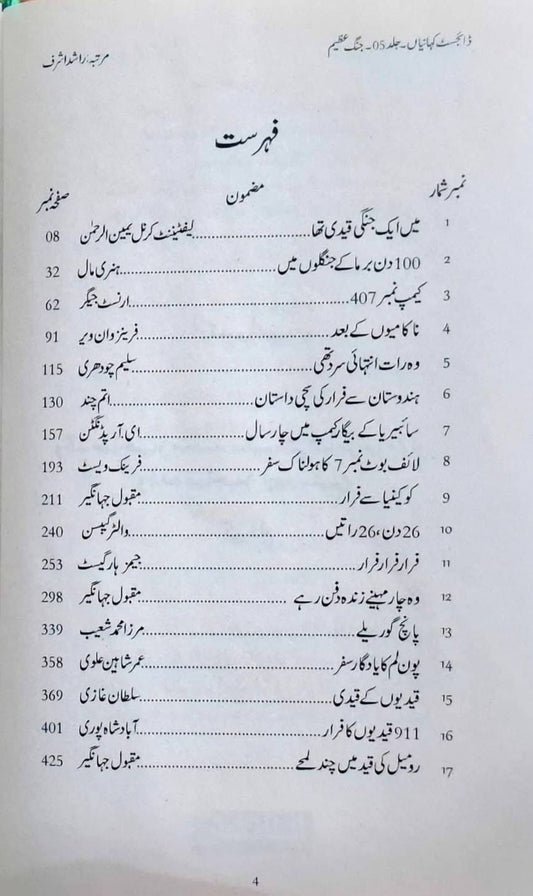 ڈائجسٹ کہانیاں۔جلد 05۔ جنگ عظیم
مرتبہ: راشد اشرف
فہرست
نمبر شمار مضمون صفحہ نمبر
1 میں ایک جنگی قیدی تھا..........لیفٹیننٹ کرنل یمین الرحمٰن 08
2 100 دن برما کے جنگلوں میں..........ہنری مال 32
3 کیمپ نمبر 407..........ارنسٹ جیگر 62
4 ناکامیوں کے بعد..........فرینز وان ویر 91
5 وہ رات انتہائی سرد تھی..........سلیم چودھری 115
6 ہندوستان سے فرار کی سچی داستان..........اتم چند 130
7 سائبیریا کے بیگار کیمپ میں چار سال..........ای۔آر پڈنگٹن 157
8 لائف بوٹ نمبر 7 کا ہولناک سفر..........فرینک ویسٹ 193
9 کو کینیا سے فرار..........مقبول جہانگیر 211
10 26 دن، 26 راتیں..........والٹر گیبسن 240
11 فرار فرار فرار..........جیمز ہارگیسٹ 253
12 وہ چار مہینے زندہ دفن رہے..........مقبول جہانگیر 298
13 پانچ گوریلے..........مرزا محمد شعیب 339
14 پون لم کا یادگار سفر..........عمر شاہین علوی 358
15 قیدیوں کے قیدی..........سلطان غازی 369
16 911 قیدیوں کا فرار..........آباد شاہ پوری 401
17 رومیل کی قید میں چند لمحے..........مقبول جہانگیر 425
4